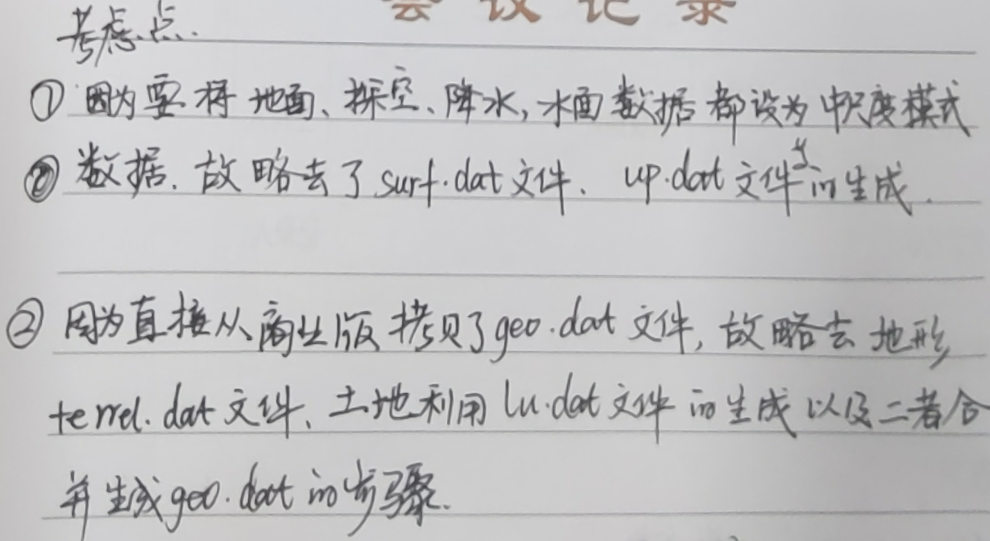 会议记录
考虑点.
① 因为要将地面、探空、降水,水面数据都设为中尺度模式
数据.故略去了surf.dat文件、up.dat文件等的生成.
② 因为直接从商业版拷贝了geo.dat文件,故略去地形
terrel.dat文件、土地利用lu.dat文件的生成以及二者合
并生成geo.dat的步骤.